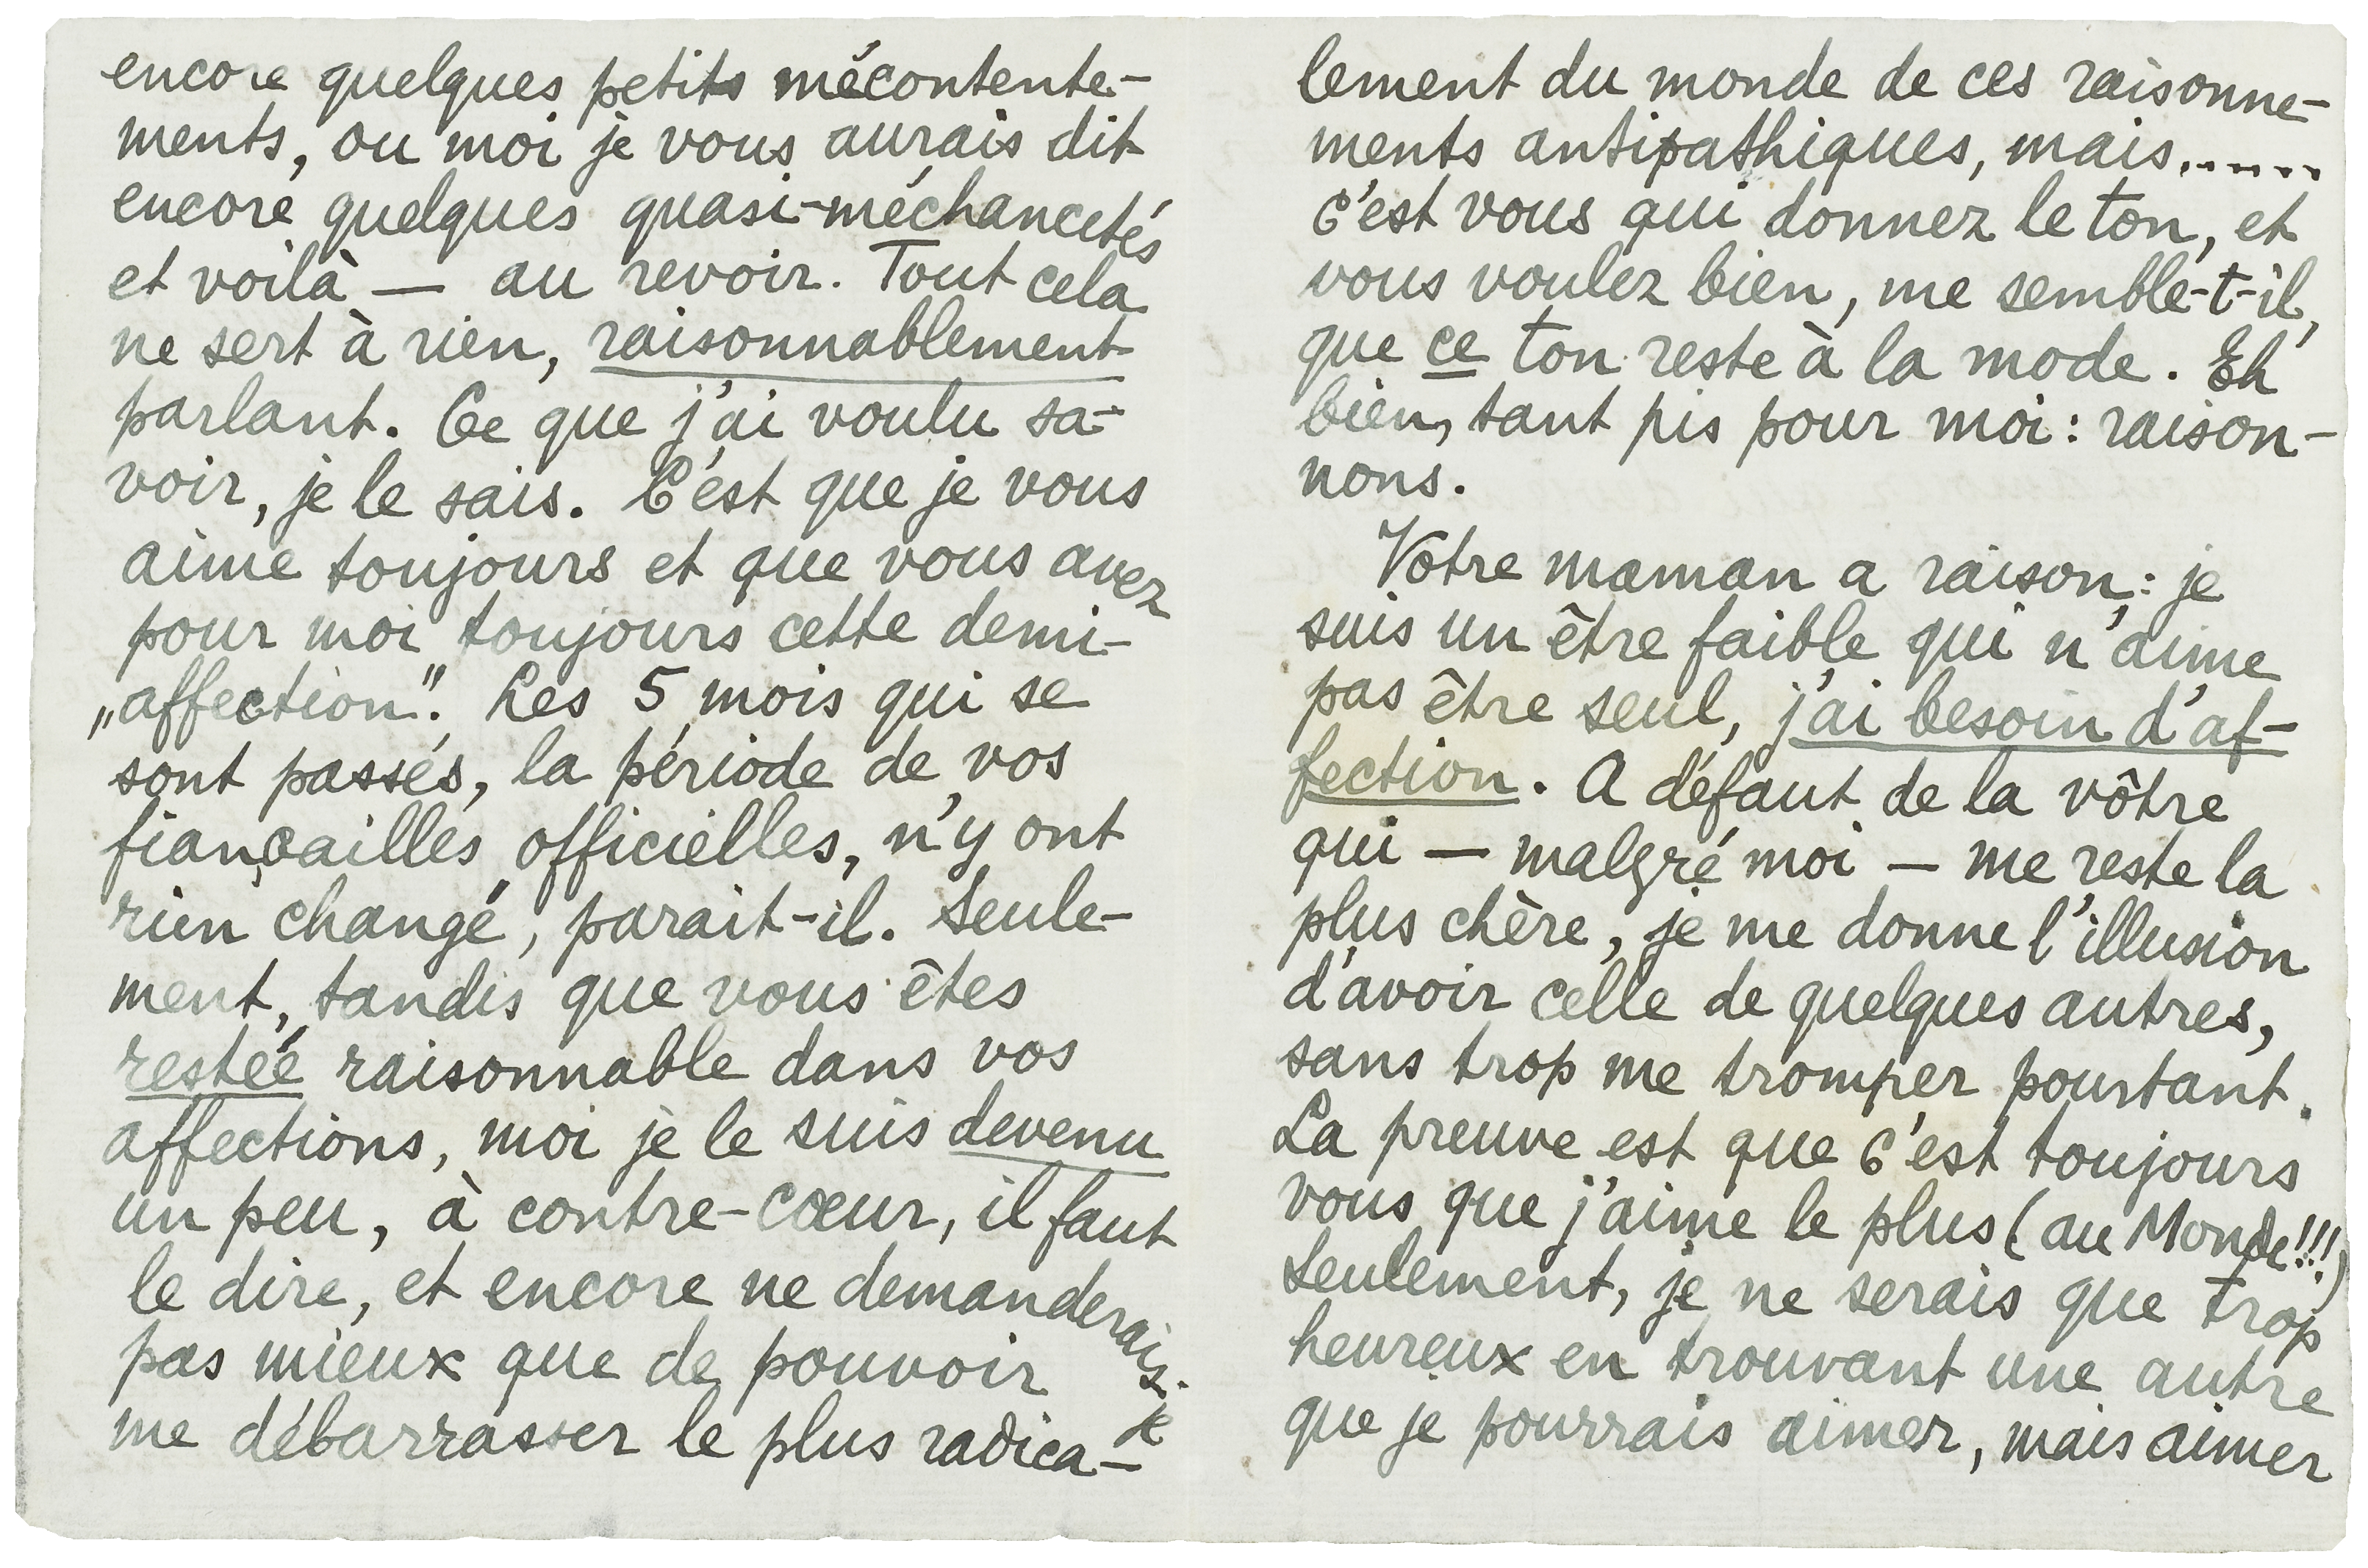 encore quelques petits mécontente-
ments, ou moi je vous aurais dit
encore quelques quasi-méchancetés
et voilà — au revoir. Tout cela
ne sert à rien, raisonnablement
parlant. Ce que j'ai voulu sa-
voir, je le sais. C'est que je vous
aime toujours et que vous avez
pour moi toujours cette demi-
„affection". Les 5 mois qui se
sont passés, la période de vos
fiançailles officielles, n'y ont
rien changé, parait-il. Seule-
ment, tandis que vous êtes
restée raisonnable dans vos
affections, moi je le suis devenu
un peu, à contre-cœur, il faut
le dire, et encore ne demanderais-je
pas mieux que de pouvoir
me débarrasser le plus radica-
lement du monde de ces raisonne-
ments antipathiques, mais......
c'est vous qui donnez le ton, et
vous voulez bien, me semble-t-il,
que ce ton reste à la mode. Eh
bien, tant pis pour moi : raison-
nons.
Votre maman a raison : je
suis un être faible qui n'aime
pas être seul, j'ai besoin d'af-
fection. A défaut de la vôtre
qui — malgré moi — me reste la
plus chère, je me donne l'illusion
d'avoir celle de quelques autres,
sans trop me tromper pourtant.
La preuve est que c'est toujours
vous que j'aime le plus (au Monde!!!)
Seulement, je ne serais que trop
heureux en trouvant une autre
que je pourrais aimer, mais aimer